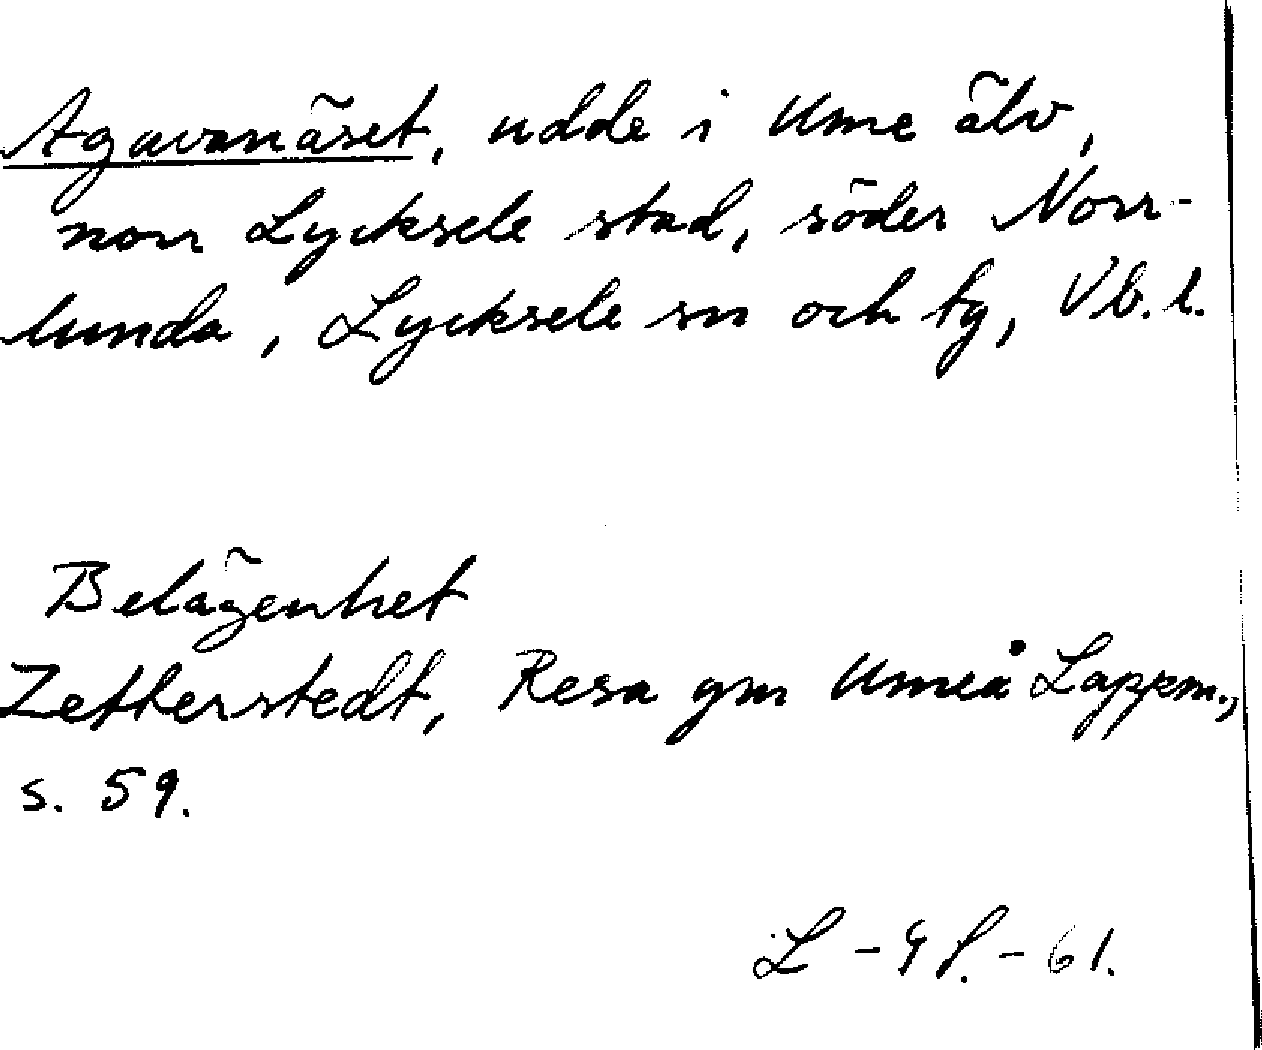 Agavanäset, udde i Ume älv,
norr Lycksele stad, söder Norr-
lunda, Lycksele sn och tg, Vb. l.
Belägenhet
Zetterstedt, Resa gm Umeå Lappm.,
s. 59.
L